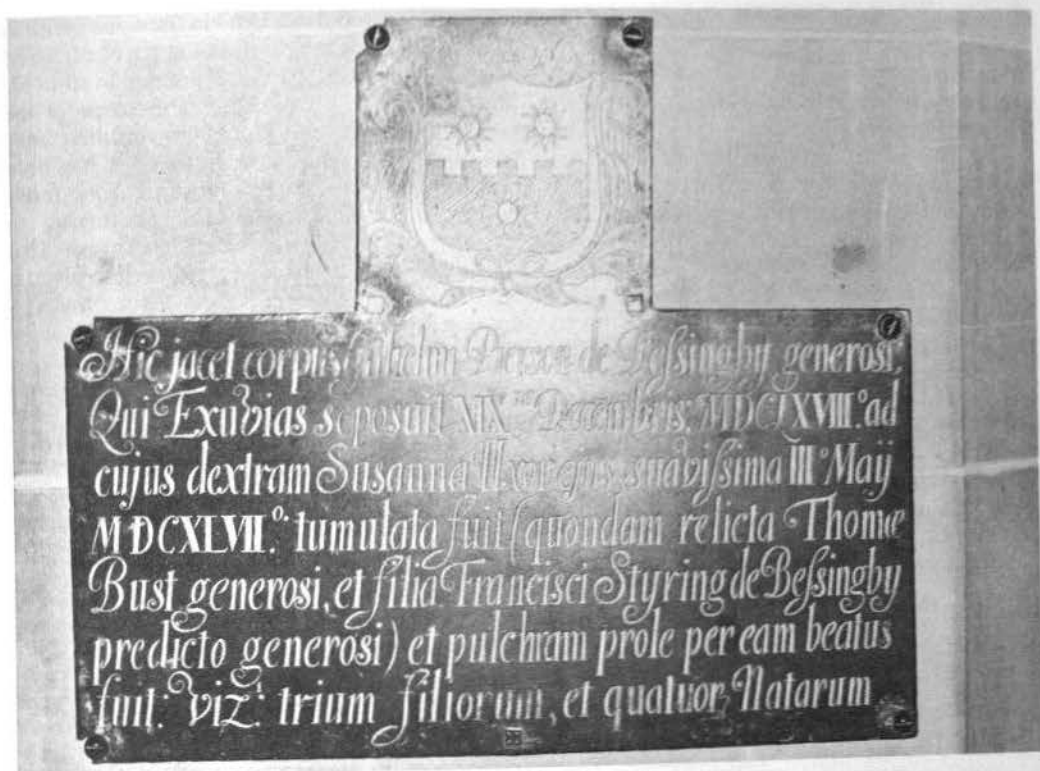 Hic jacet corpus Gulielmi Pierson de Beſsingby generosi,
Qui Exuvias seposuit XIX Decembris, MDCLXVIII.º ad
cujus dextram Susanna Uxor ejus suaviſsima IIIº Maÿ
MDCXLVII.º: tumulata fuit (quondam relicta Thomæ
Bust generosi, et filia Francisci Styring de Beſsingby
predicto generosi) et pulchram prole per eam beatus
fuit: viz: trium filiorum, et quatuor, Natarum